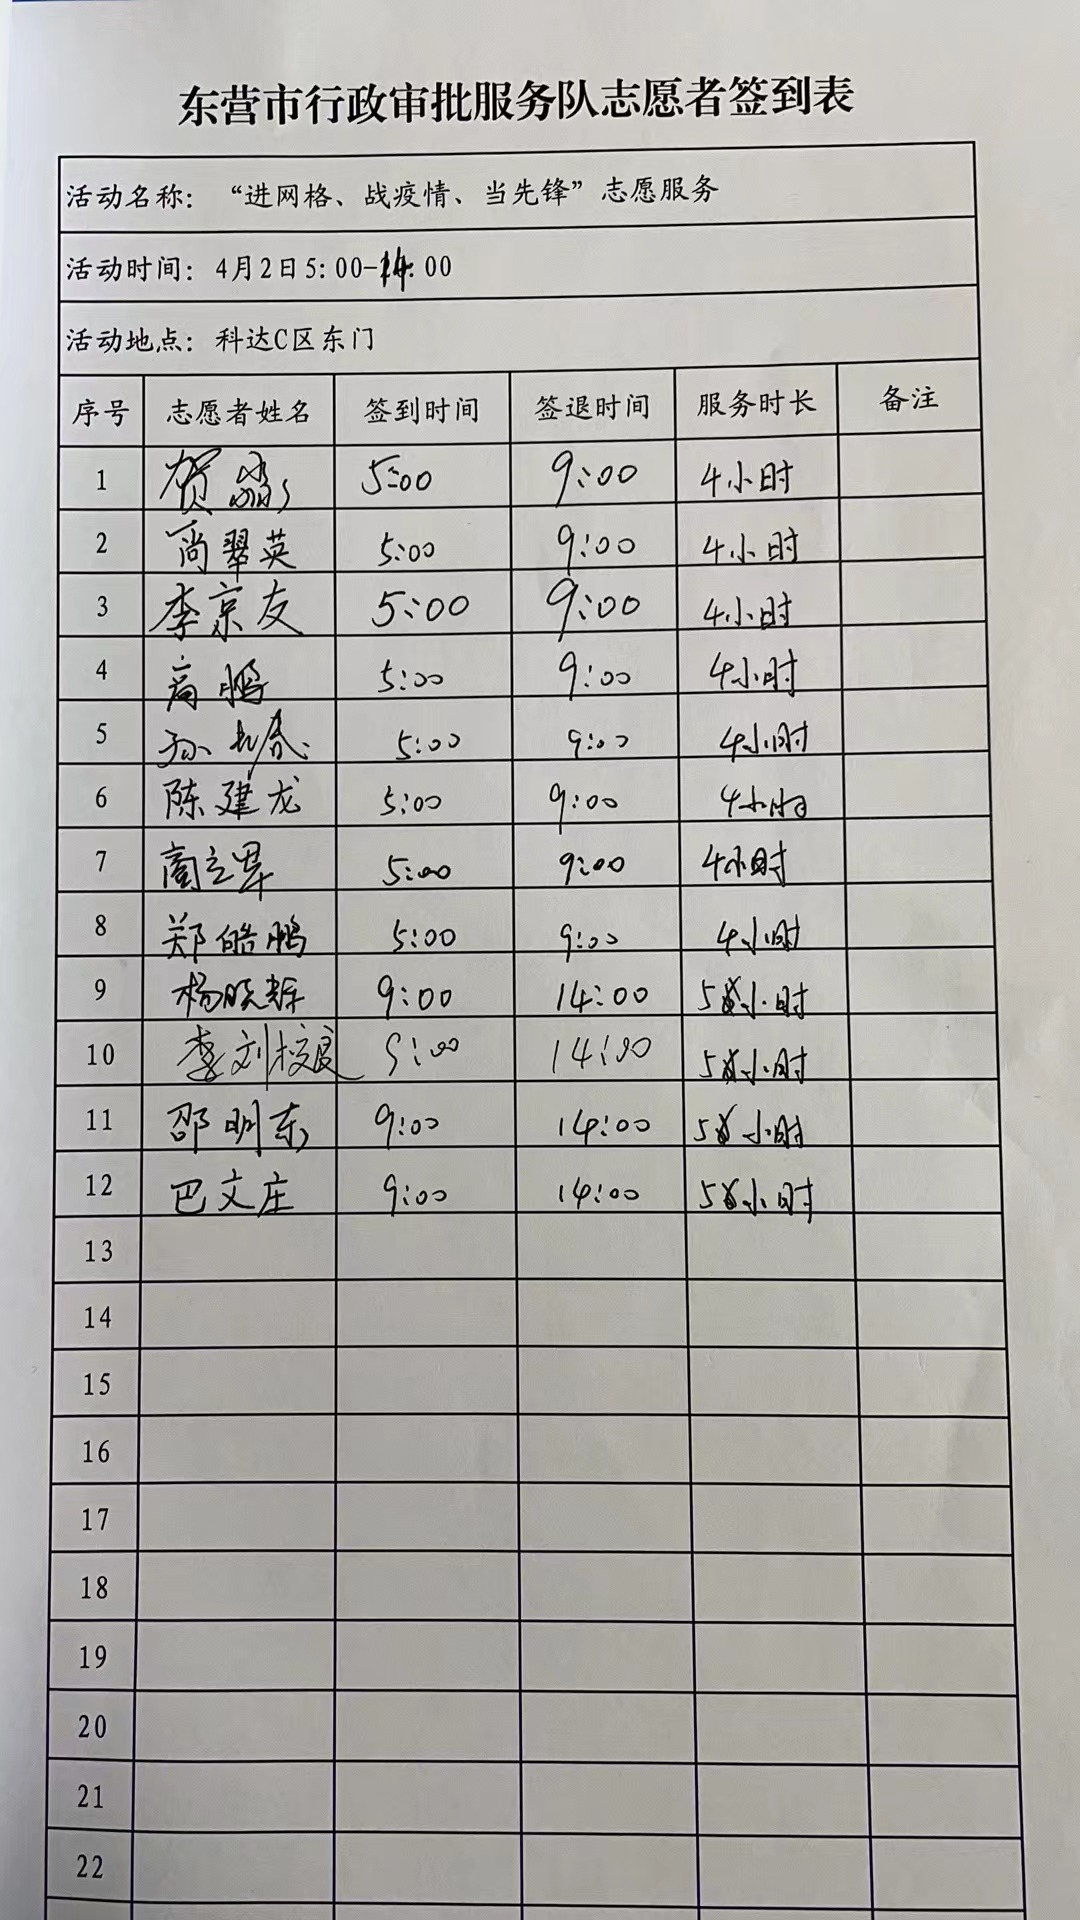 东营市行政审批服务队志愿者签到表
活动名称：“进网格、战疫情、当先锋”志愿服务
活动时间：4月2日5:00-14:00
活动地点：科达C区东门
序号 志愿者姓名 签到时间 签退时间 服务时长 备注
1 贺淼 5:00 9:00 4小时
2 尚翠英 5:00 9:00 4小时
3 李京友 5:00 9:00 4小时
4 高鹏 5:00 9:00 4小时
5 孙 5:00 9:00 4小时
6 陈建龙 5:00 9:00 4小时
7 5:00 9:00 4小时
8 郑皓鹏 5:00 9:00 4小时
9 杨晓 9:00 14:00 5小时
10 李刘校良 9:00 14:00 5小时
11 邵明东 9:00 14:00 5小时
12 巴文庄 9:00 14:00 5小时
13
14
15
16
17
18
19
20
21
22